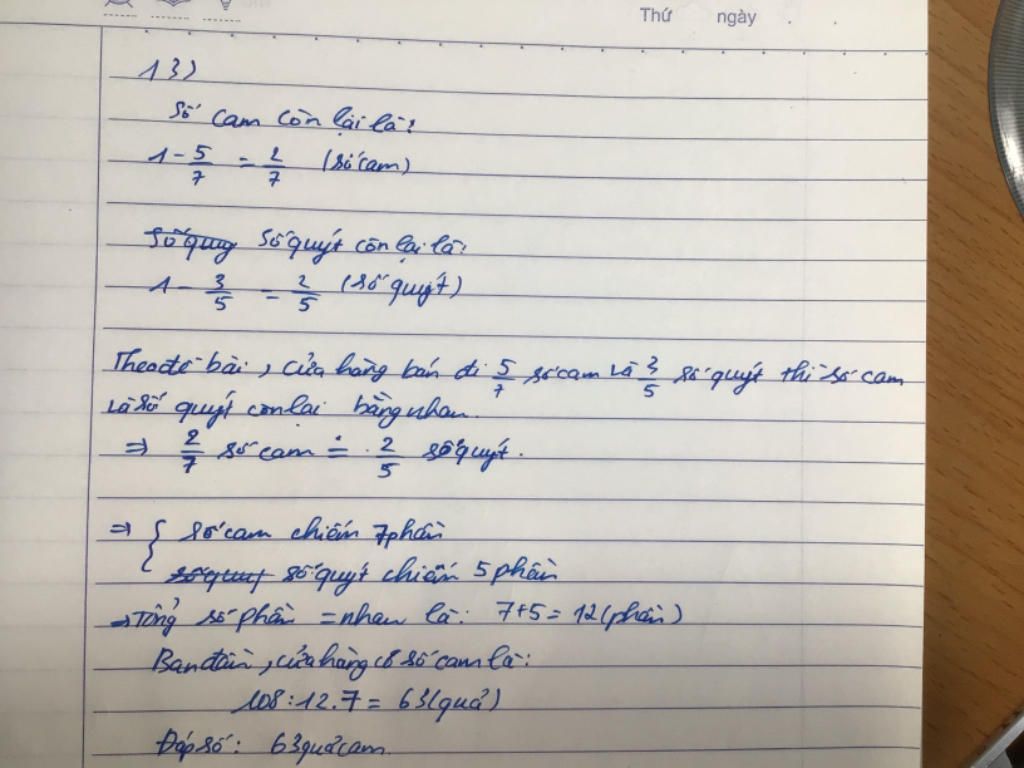 Thứ ngày
13)
Số cam còn lại là:
1 - 5/7 = 2/7 (số cam)
Số quy Số quýt còn lại là:
1 - 3/5 = 2/5 (số quýt)
Theo đề bài, cửa hàng bán đi 5/7 số cam và 3/5 số quýt thì số cam
và số quýt còn lại bằng nhau.
⇒ 2/7 số cam = 2/5 số quýt.
⇒ { số cam chiếm 7 phần
số quy số quýt chiếm 5 phần
⇒ Tổng số phần = nhau là: 7+5 = 12 (phần)
Ban đầu, cửa hàng có số cam là:
108 : 12 . 7 = 63 (quả)
Đáp số: 63 quả cam.